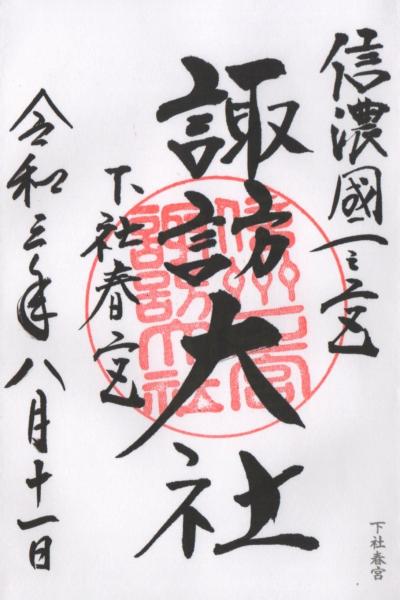 信濃國一之宮
諏訪大社
下社春宮
令和三年八月十一日
信州一之宮
諏訪大社
下社春宮